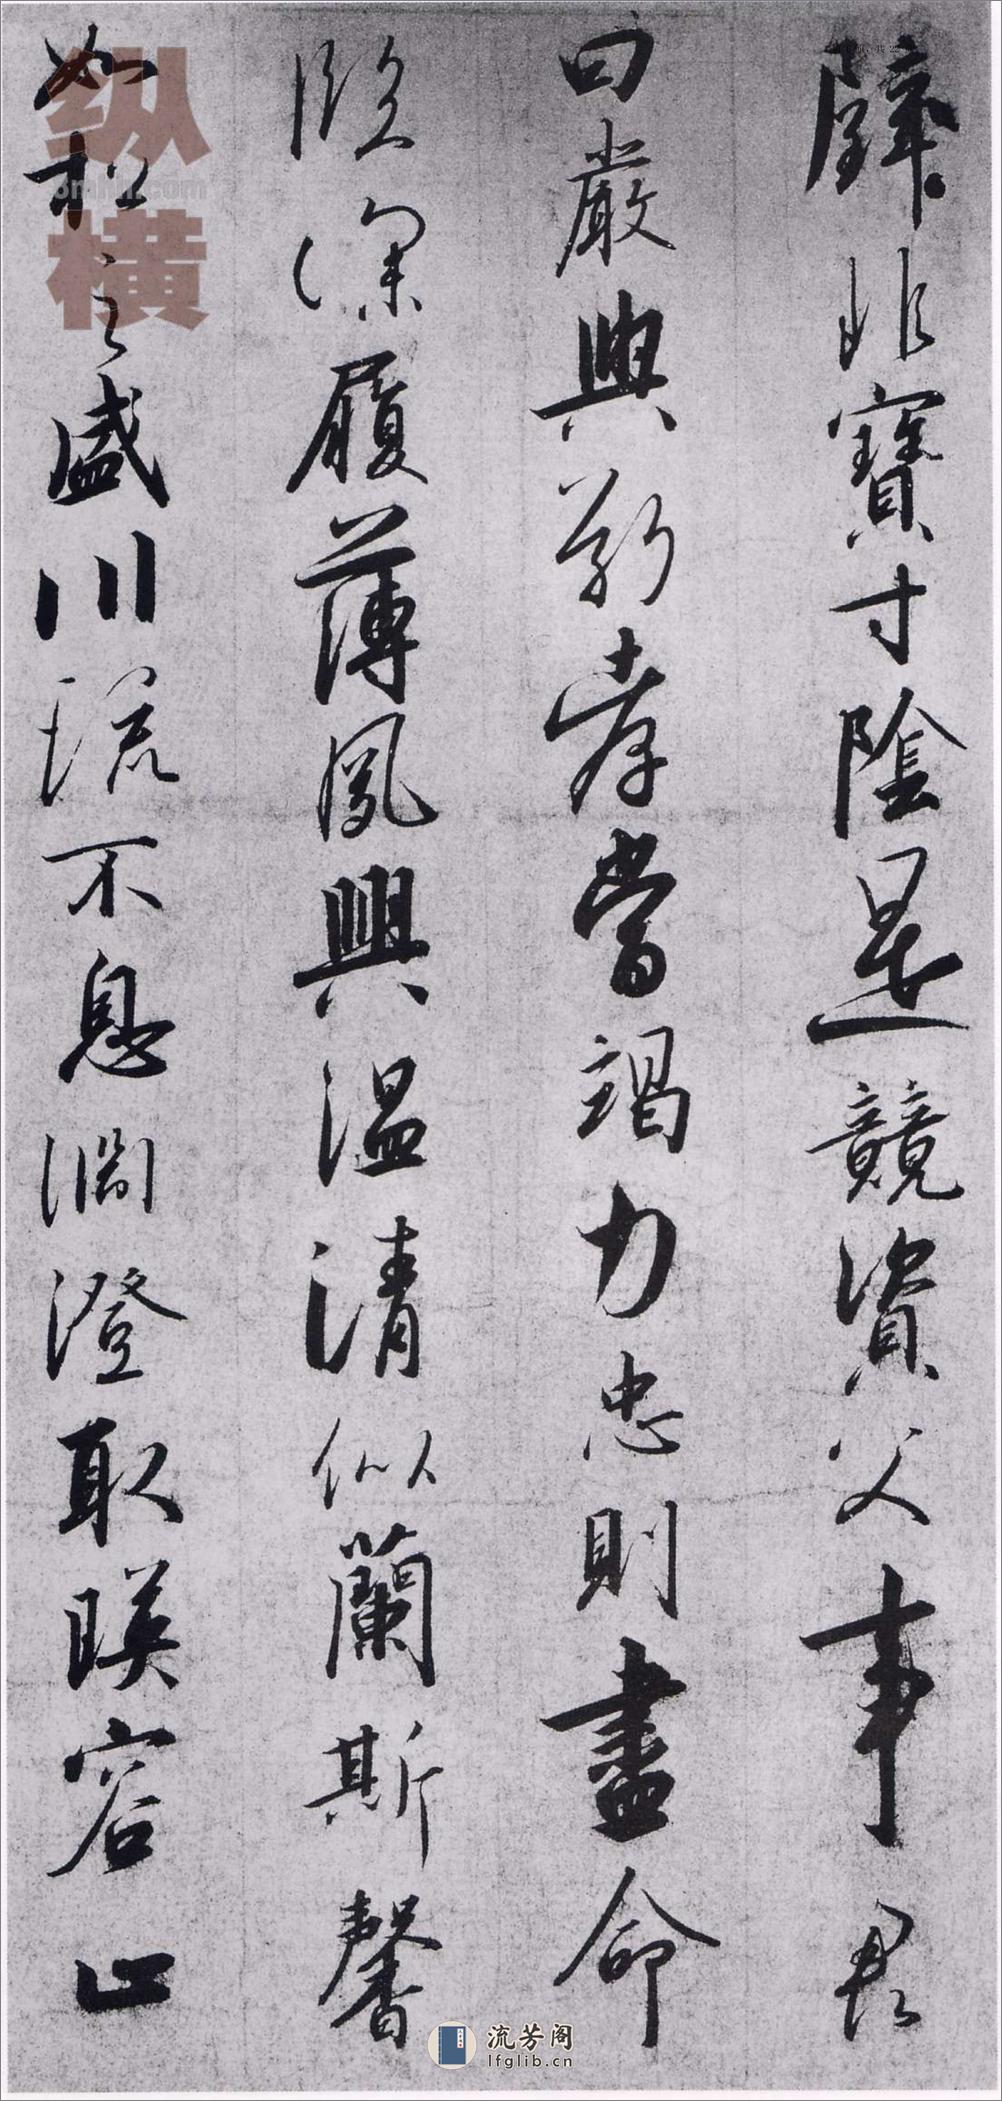 璧非寶寸陰是競資父事君
曰嚴與敬孝當竭力忠則盡命
臨深履薄夙興温清似蘭斯馨
如松之盛川流不息淵澄取暎容止
纵横
流芳阁
lfglib.cn